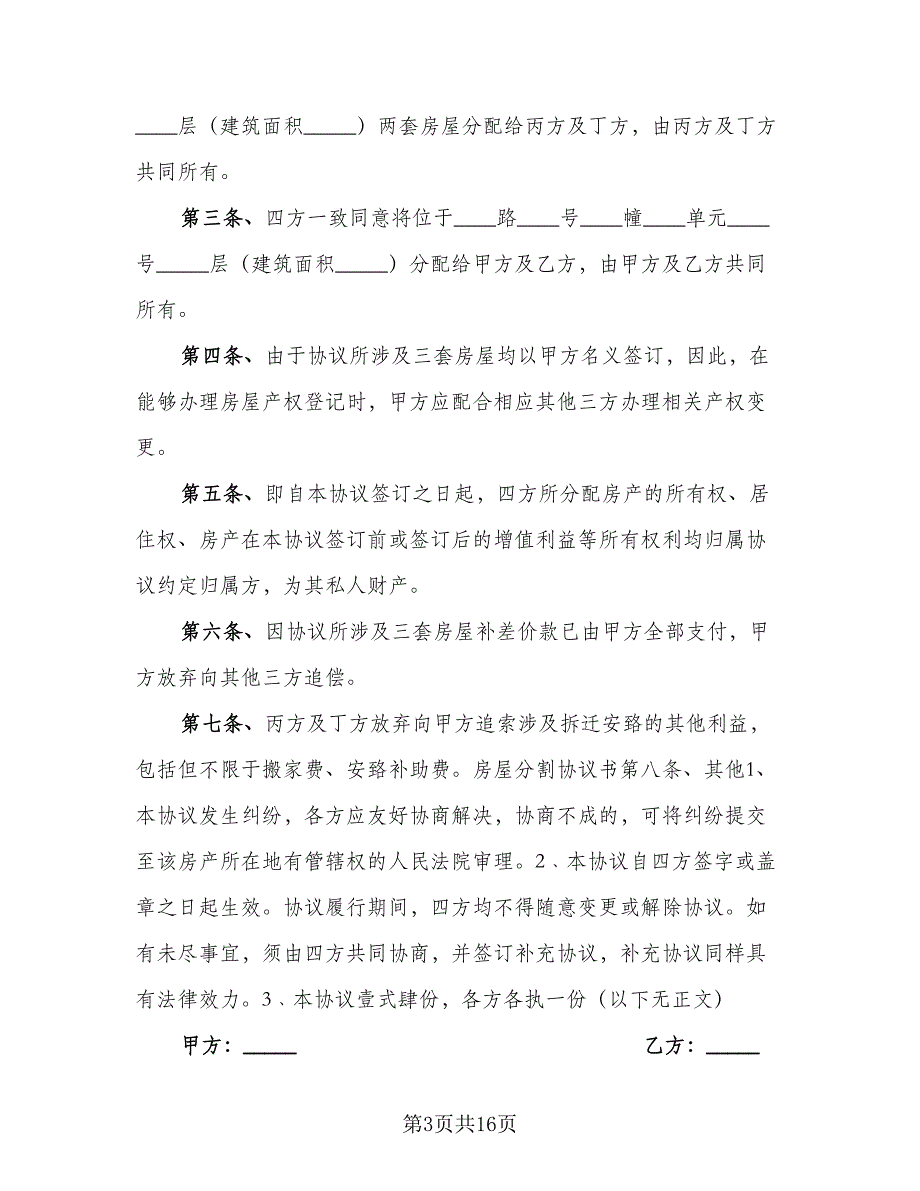 ____层（建筑面积_____）两套房屋分配给丙方及丁方，由丙方及丁方
共同所有。
第三条、四方一致同意将位于____路____号____幢____单元____
号_____层（建筑面积_____）分配给甲方及乙方，由甲方及乙方共同
所有。
第四条、由于协议所涉及三套房屋均以甲方名义签订，因此，在
能够办理房屋产权登记时，甲方应配合相应其他三方办理相关产权变
更。
第五条、即自本协议签订之日起，四方所分配房产的所有权、居
住权、房产在本协议签订前或签订后的增值利益等所有权利均归属协
议约定归属方，为其私人财产。
第六条、因协议所涉及三套房屋补差价款已由甲方全部支付，甲
方放弃向其他三方追偿。
第七条、丙方及丁方放弃向甲方追索涉及拆迁安臵的其他利益，
包括但不限于搬家费、安臵补助费。房屋分割协议书第八条、其他1、
本协议发生纠纷，各方应友好协商解决，协商不成的，可将纠纷提交
至该房产所在地有管辖权的人民法院审理。2﹑本协议自四方签字或盖
章之日起生效。协议履行期间，四方均不得随意变更或解除协议。如
有未尽事宜，须由四方共同协商，并签订补充协议，补充协议同样具
有法律效力。3﹑本协议壹式肆份，各方各执一份（以下无正文）
甲方：_____ 乙方：_____
第3页共16页